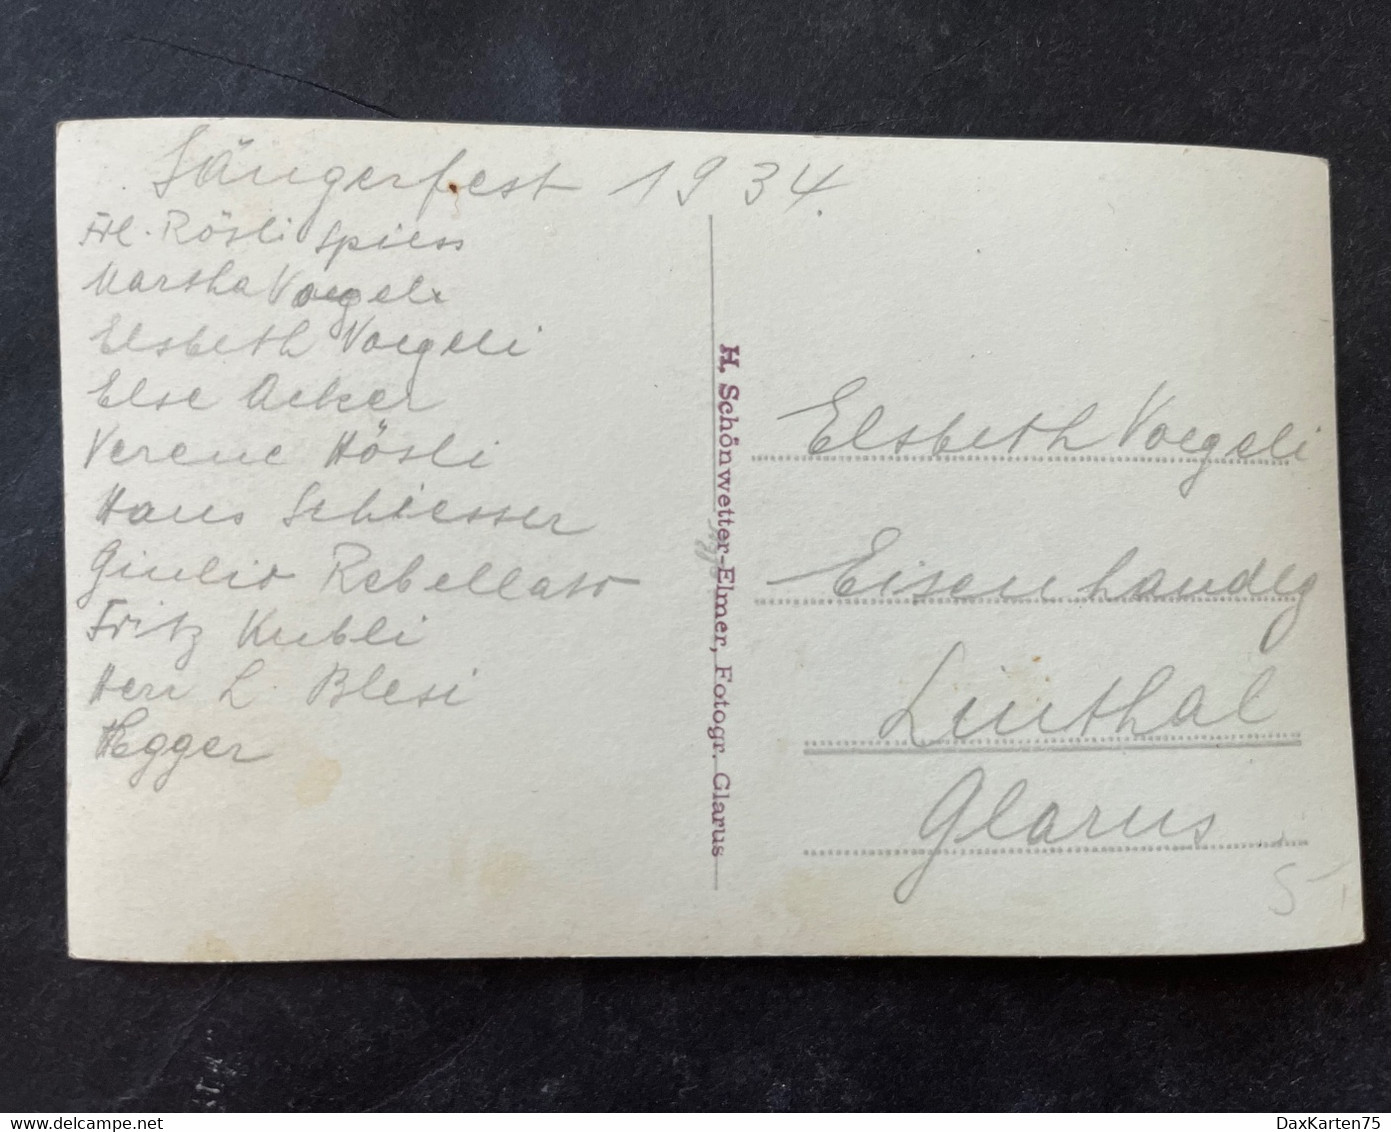 Sängerfest 1934.
Frl. Rösli Spiess
Martha Voegeli
Elsbeth Voegeli
Else Acker
Verene Hösli
Hans Schiesser
Giulio Rebellato
Fritz Kubli
Herr L. Blesi
Hegger
H. Schönwetter-Elmer, Fotogr. Glarus
Elsbeth Voegeli
Eisenhandlg
Linthal
Glarus
5
www.delcampe.net
DaxKarten75